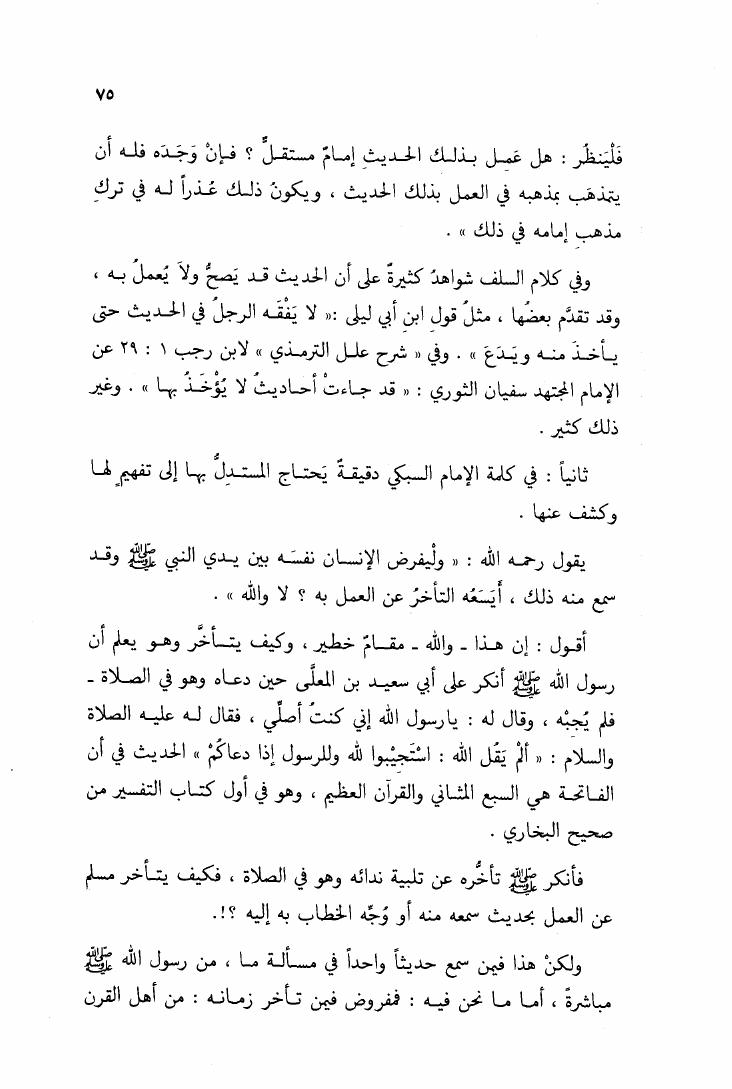 ٧٥
فَلْيَنظُر : هل عَمِل بذلك الحديث إمامٌ مستقلٌّ ؟ فإنْ وَجَدَه فله أن
يتمذهَب بمذهبه في العمل بذلك الحديث ، ويكونُ ذلك عُذراً له في تركِ
مذهبِ إمامه في ذلك » .
وفي كلام السلف شواهدُ كثيرةٌ على أن الحديث قد يَصحُّ ولاَ يُعملُ به ،
وقد تقدَّم بعضُها ، مثلُ قول ابن أبي ليلى :« لا يَفْقَه الرجلُ في الحديث حتى
يأخذَ منه ويَدَعَ » . وفي « شرح علل الترمذي » لابن رجب ١ : ٢٩ عن
الإمام المجتهد سفيان الثوري : « قد جاءتْ أحاديثُ لا يُؤْخَذُ بها » . وغير
ذلك كثير .
ثانياً : في كلمة الإمام السبكي دقيقةٌ يَحتاج المستدِلُّ بها إلى تفهيمٍ لها
وكشف عنها .
يقول رحمه الله : « ولْيفرض الإنسان نفسَه بين يدي النبي ﷺ وقد
سمع منه ذلك ، أَيَسَعُه التأخرُ عن العمل به ؟ لا والله » .
أقول : إن هذا ـ والله ـ مقامٌ خطير ، وكيف يتأخَّر وهو يعلم أن
رسول الله ﷺ أنكر على أبي سعيد بن المعلَّى حين دعاه وهو في الصلاة ـ
فلم يُجِبْه ، وقال له : يارسول الله إني كنتُ أصلِّي ، فقال له عليه الصلاة
والسلام : « ألمْ يَقُل الله : اسْتَجِيْبوا لله وللرسول إذا دعاكُمْ » الحديث في أن
الفاتحة هي السبع المثاني والقرآن العظيم ، وهو في أول كتاب التفسير من
صحيح البخاري .
فأنكر ﷺ تأخُّره عن تلبية ندائه وهو في الصلاة ، فكيف يتأخر مسلم
عن العمل بحديث سمعه منه أو وُجِّه الخطاب به إليه ؟!.
ولكنْ هذا فيمن سمع حديثاً واحداً في مسألة ما ، من رسول الله ﷺ
مباشرةً ، أما ما نحن فيه : فمفروض فيمن تأخر زمانه : من أهل القرن